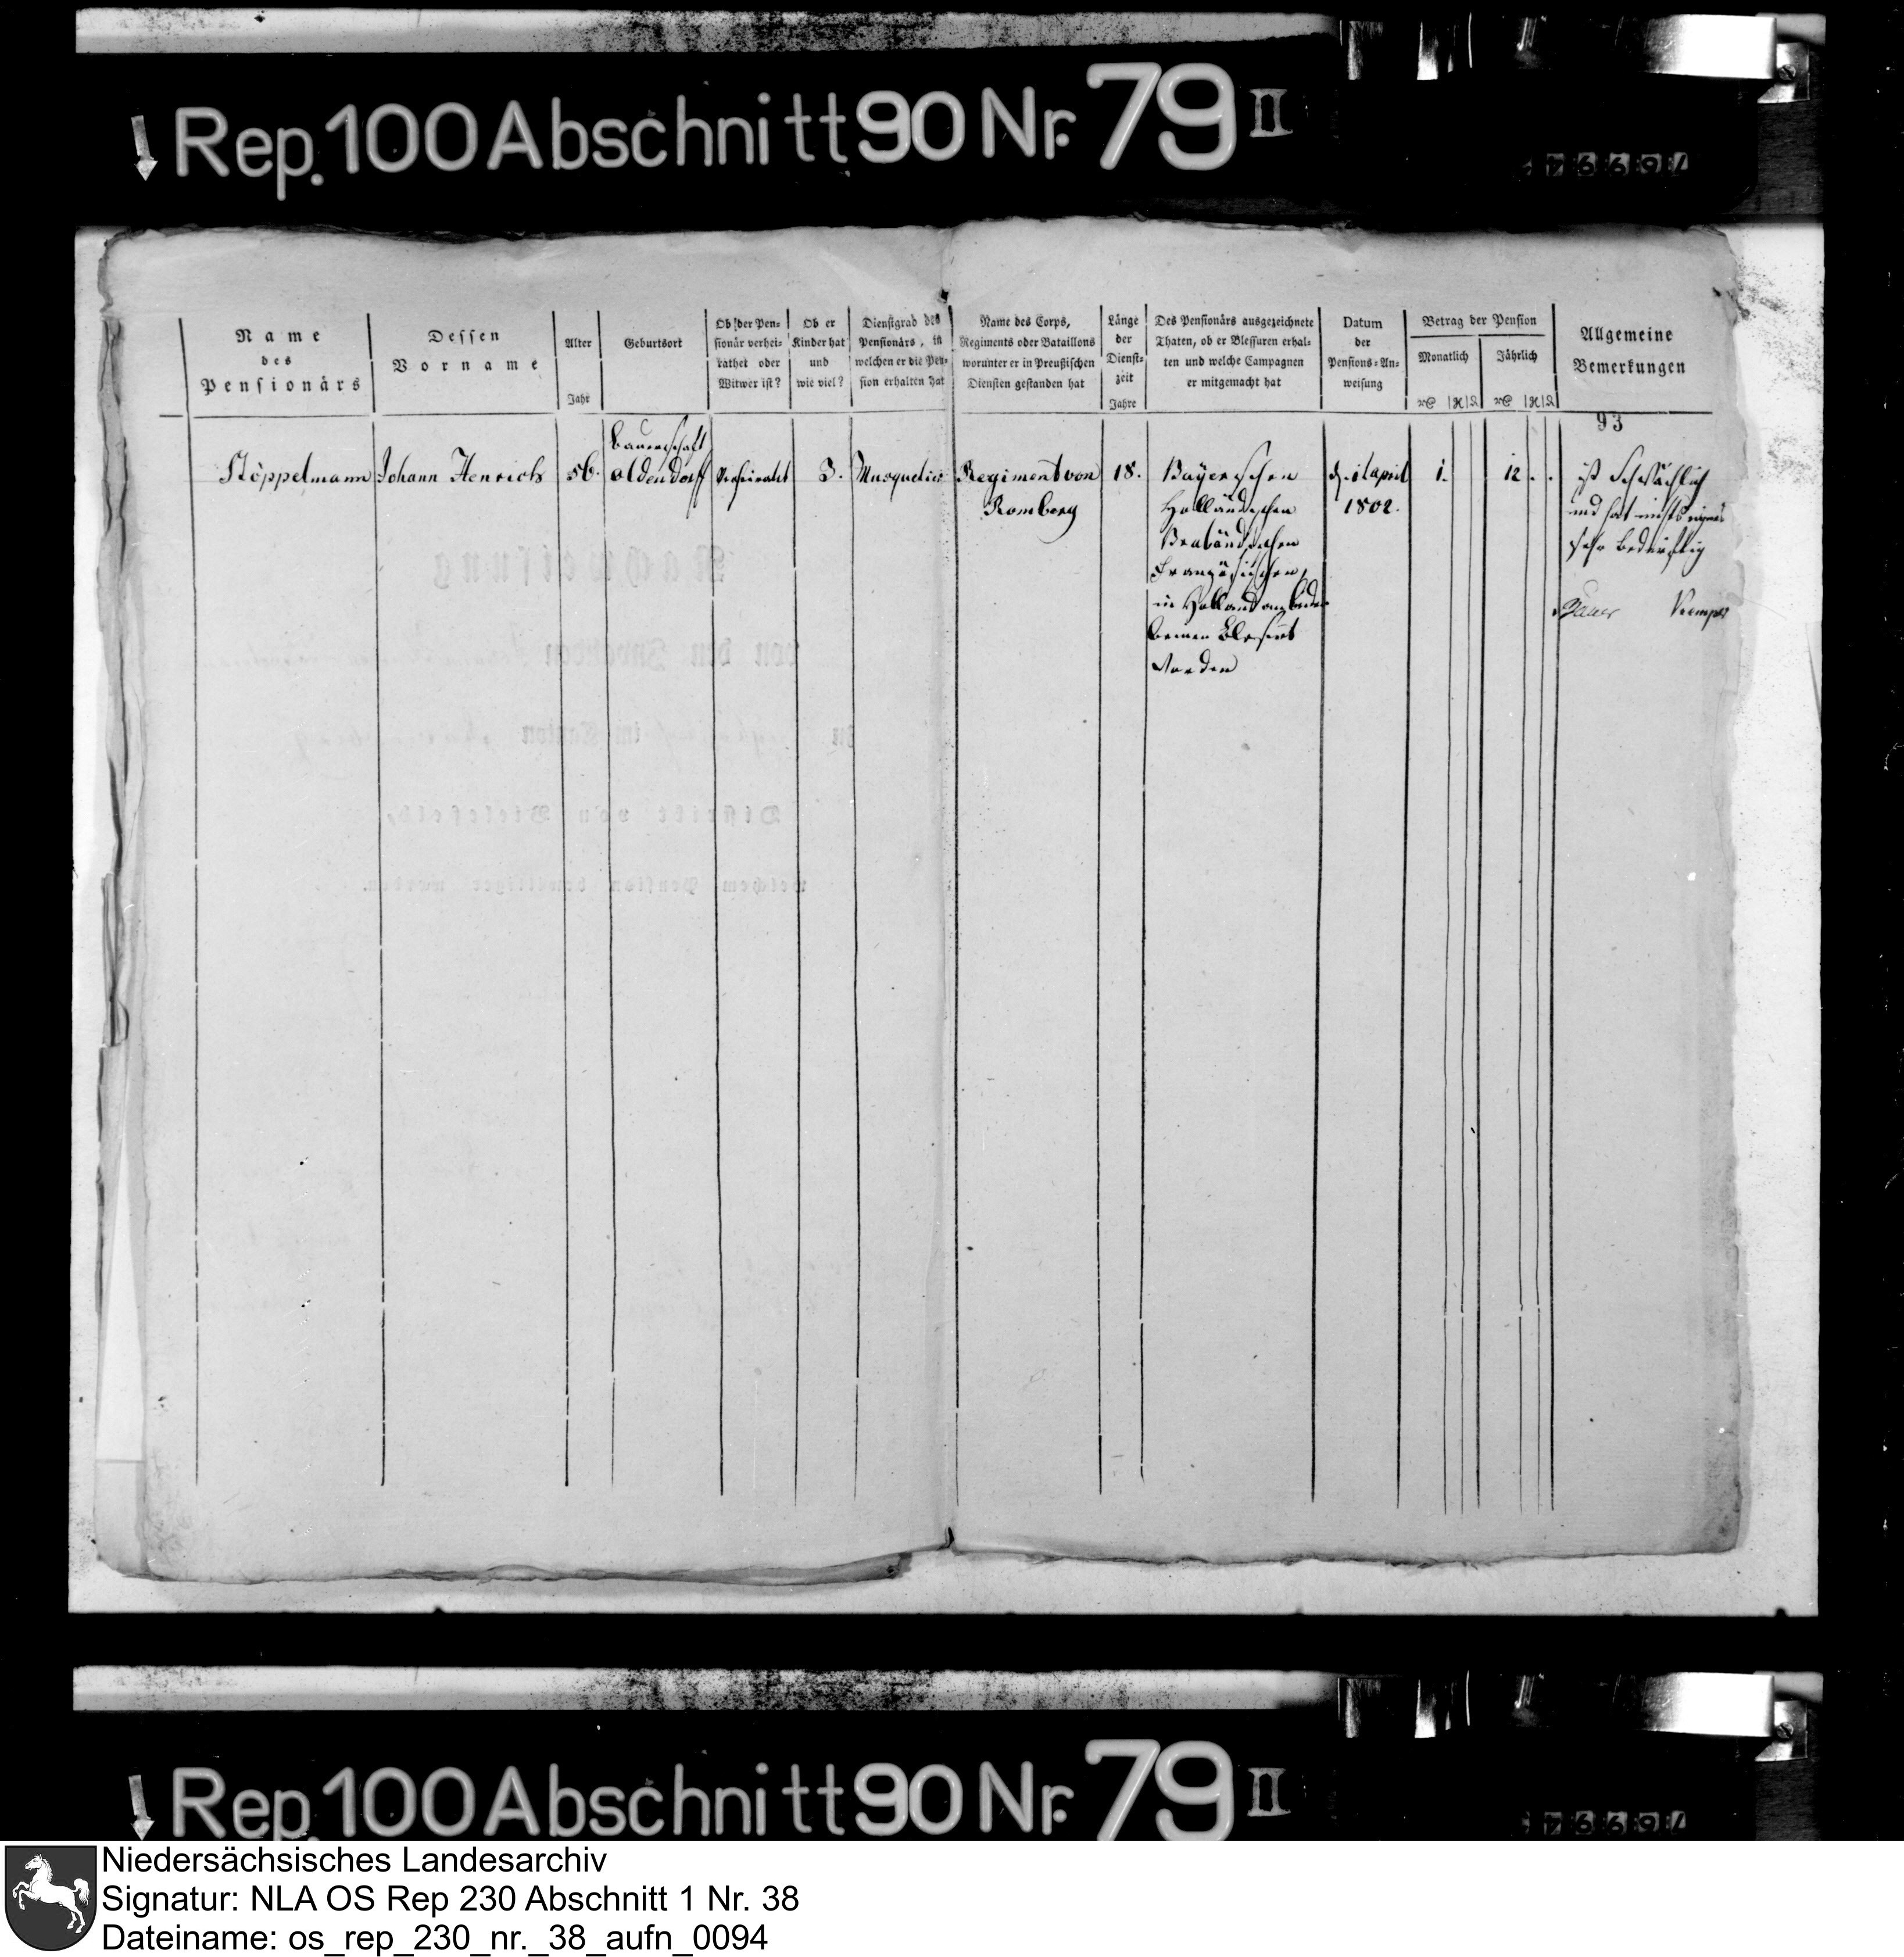 Rep. 100 Abschnitt 90 Nr. 79 II
Name
des
Pensionärs
Dessen
Vorname
Alter
Jahr
Geburtsort
Ob der Pen-
sionär verhei-
rathet oder
Witwer ist?
Ob er
Kinder hat
und
wie viel?
Dienstgrad des
Pensionärs, in
welchen er die Pen-
sion erhalten hat
Name des Corps,
Regiments oder Bataillons
worunter er in Preußischen
Diensten gestanden hat
Länge
der
Dienst-
zeit
Jahre
Des Pensionärs ausgezeichnete
Thaten, ob er Blessuren erhal-
ten und welche Campagnen
er mitgemacht hat
Datum
der
Pensions-An-
weisung
Betrag der Pension
Monatlich
Jährlich
Allgemeine
Bemerkungen
93
Stöppelmann
Johann Henrich
56.
Bauerschaft
oldendorff
Verheirahtet
3.
Musquetier
Regiment von
Romberg
18.
Bayerschen
Holländischen
Brabändischen
Französischen,
in Holland am beiden
beinen Blesirt
worden
d. 1t april
1802.
1.
12.
ist Schwächlich
und hat nichts eignes
sehr bedürftig
Nachweisung
von den Invaliden
zu
im Kanton
Distrikt von Bielefeld,
welchem Pension bewilliget worden.
Rep. 100 Abschnitt 90 Nr. 79 II
Niedersächsisches Landesarchiv
Signatur: NLA OS Rep 230 Abschnitt 1 Nr. 38
Dateiname: os_rep_230_nr._38_aufn_0094